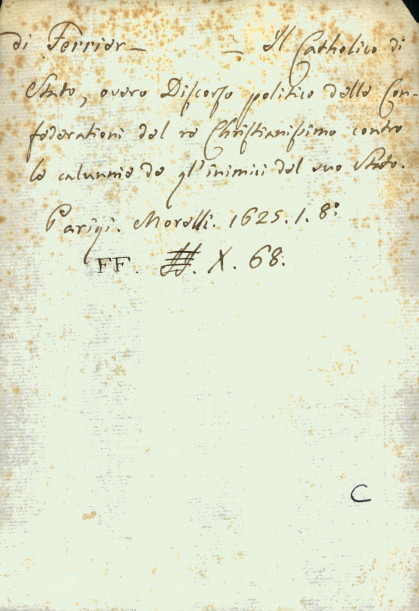 di Ferrier — — Il Catholico di
Stato, overo Discorso politico delle Con-
federationi del re Christianissimo contro
le calunnie de gl'inimici del suo Stato.
Parigi. Morelli. 1625. 1. 8º
FF. X. 68.
C